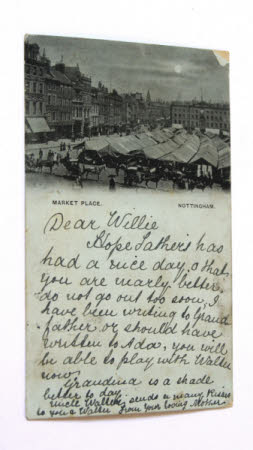 MARKET PLACE. NOTTINGHAM.
Dear Willie
Hope Fathers has
had a nice day, & that
you are nearly better,
do not go out too soon, I
have been writing to Grand
father or should have
written to Ada, you will
be able to play with Walter
now,
Grandma is a shade
better to day.
Uncle Walter sends a many Kisses
to you & Walter from your loving Mother